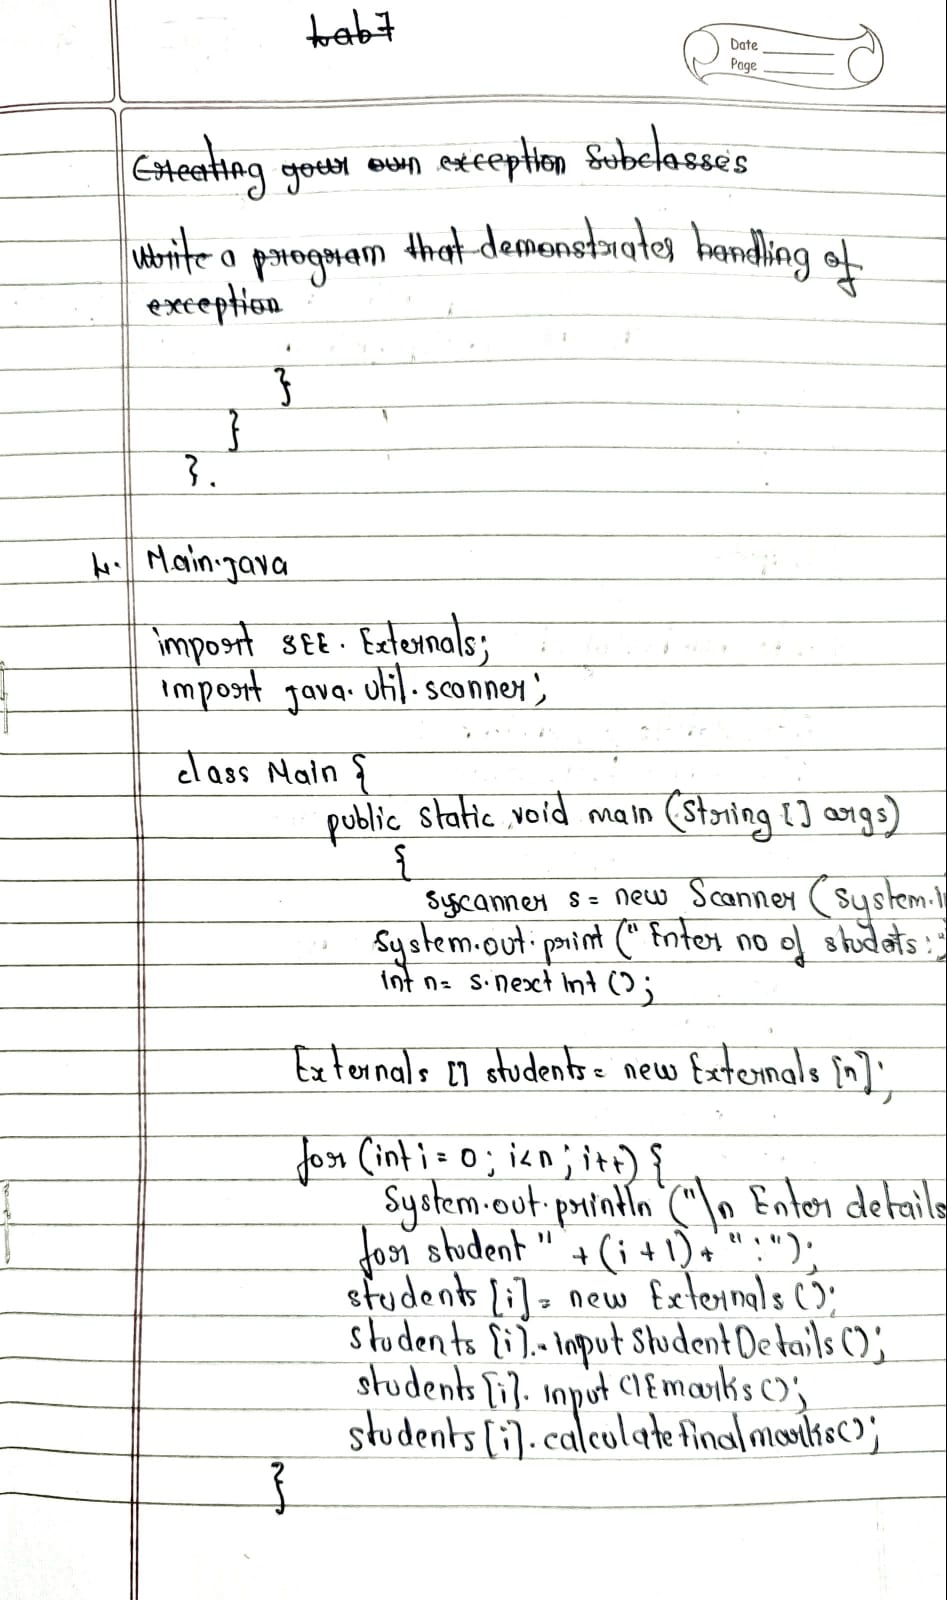 Lab7
Date
Page
Creating your own exception Subclasses
Write a program that demonstrates handling of
exception
}
}
}.
4. Main.java
import SEE. Externals;
import java. util. scanner;
class Main {
public static void main (String [] args)
{
syscanner s = new Scanner (System.i
System.out.print (" Enter no of studets :"
int n= s.next Int ();
Externals [] students = new Externals [n];
for (int i = 0; i<n; i++) {
System.out.println ("\n Enter details
for student " + (i + 1) + " : ");
students [i] = new Externals ();
students [i].. input StudentDetails ();
students [i]. input CIE marks ();
students [i]. calculate final marks ();
}